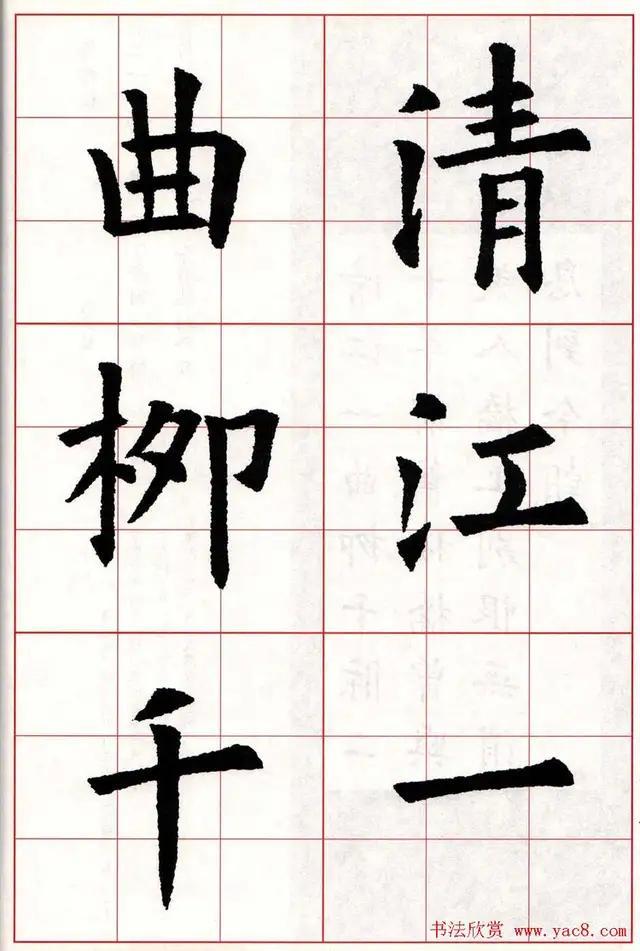 清江一
曲柳千
书法欣赏 www.yac8.com